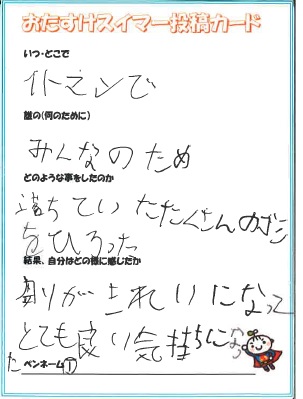 おたすけスイマー投稿カード
いつ・どこで
イトマンで
誰の(何のために)
みんなのため
どのような事をしたのか
落ちていたたくさんのゴミ
をひろった
結果、自分はどの様に感じたか
周りがきれいになって
とても良い気持ちになっ
た
ペンネーム T